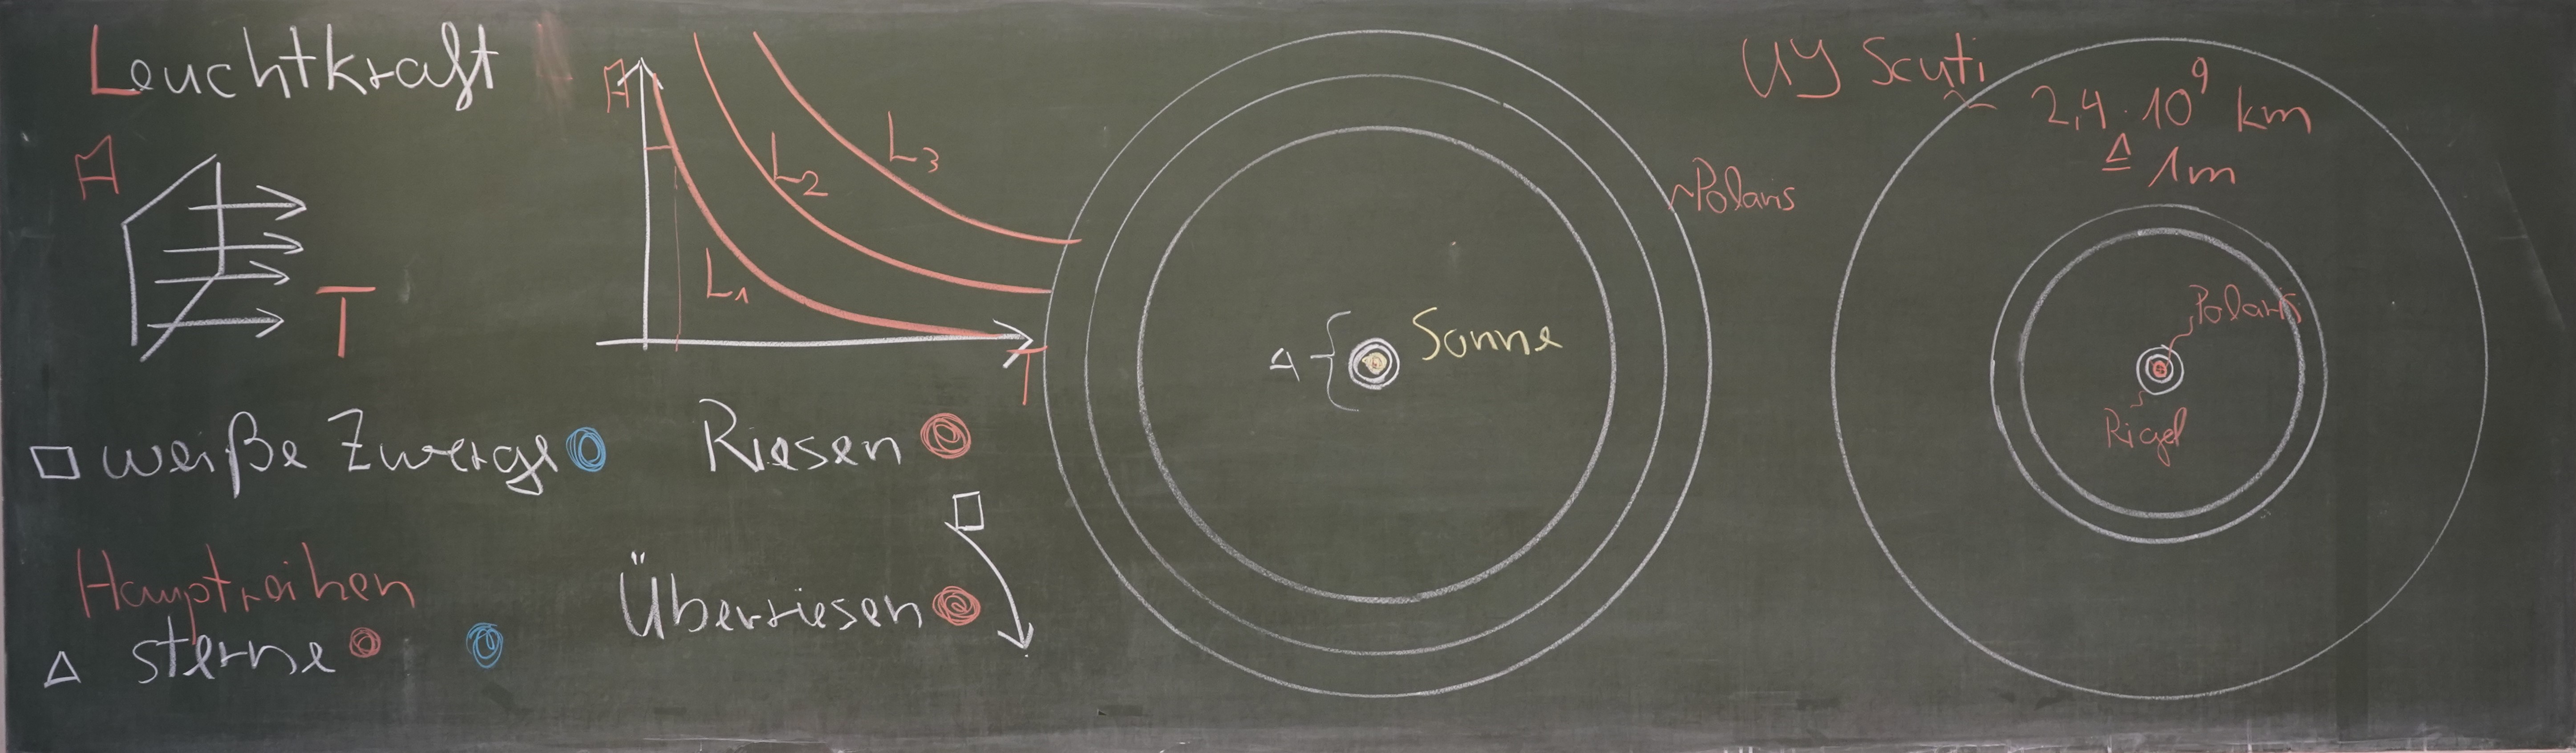 Leuchtkraft
L
A
T
A
L1
L2
L3
T
weiße Zwerge
Riesen
Hauptreihen
Δ sterne
Überriesen
Δ
Sonne
~Polaris
UY Scuti
2,4 · 10⁹ km
≙ 1m
Polaris
Rigel